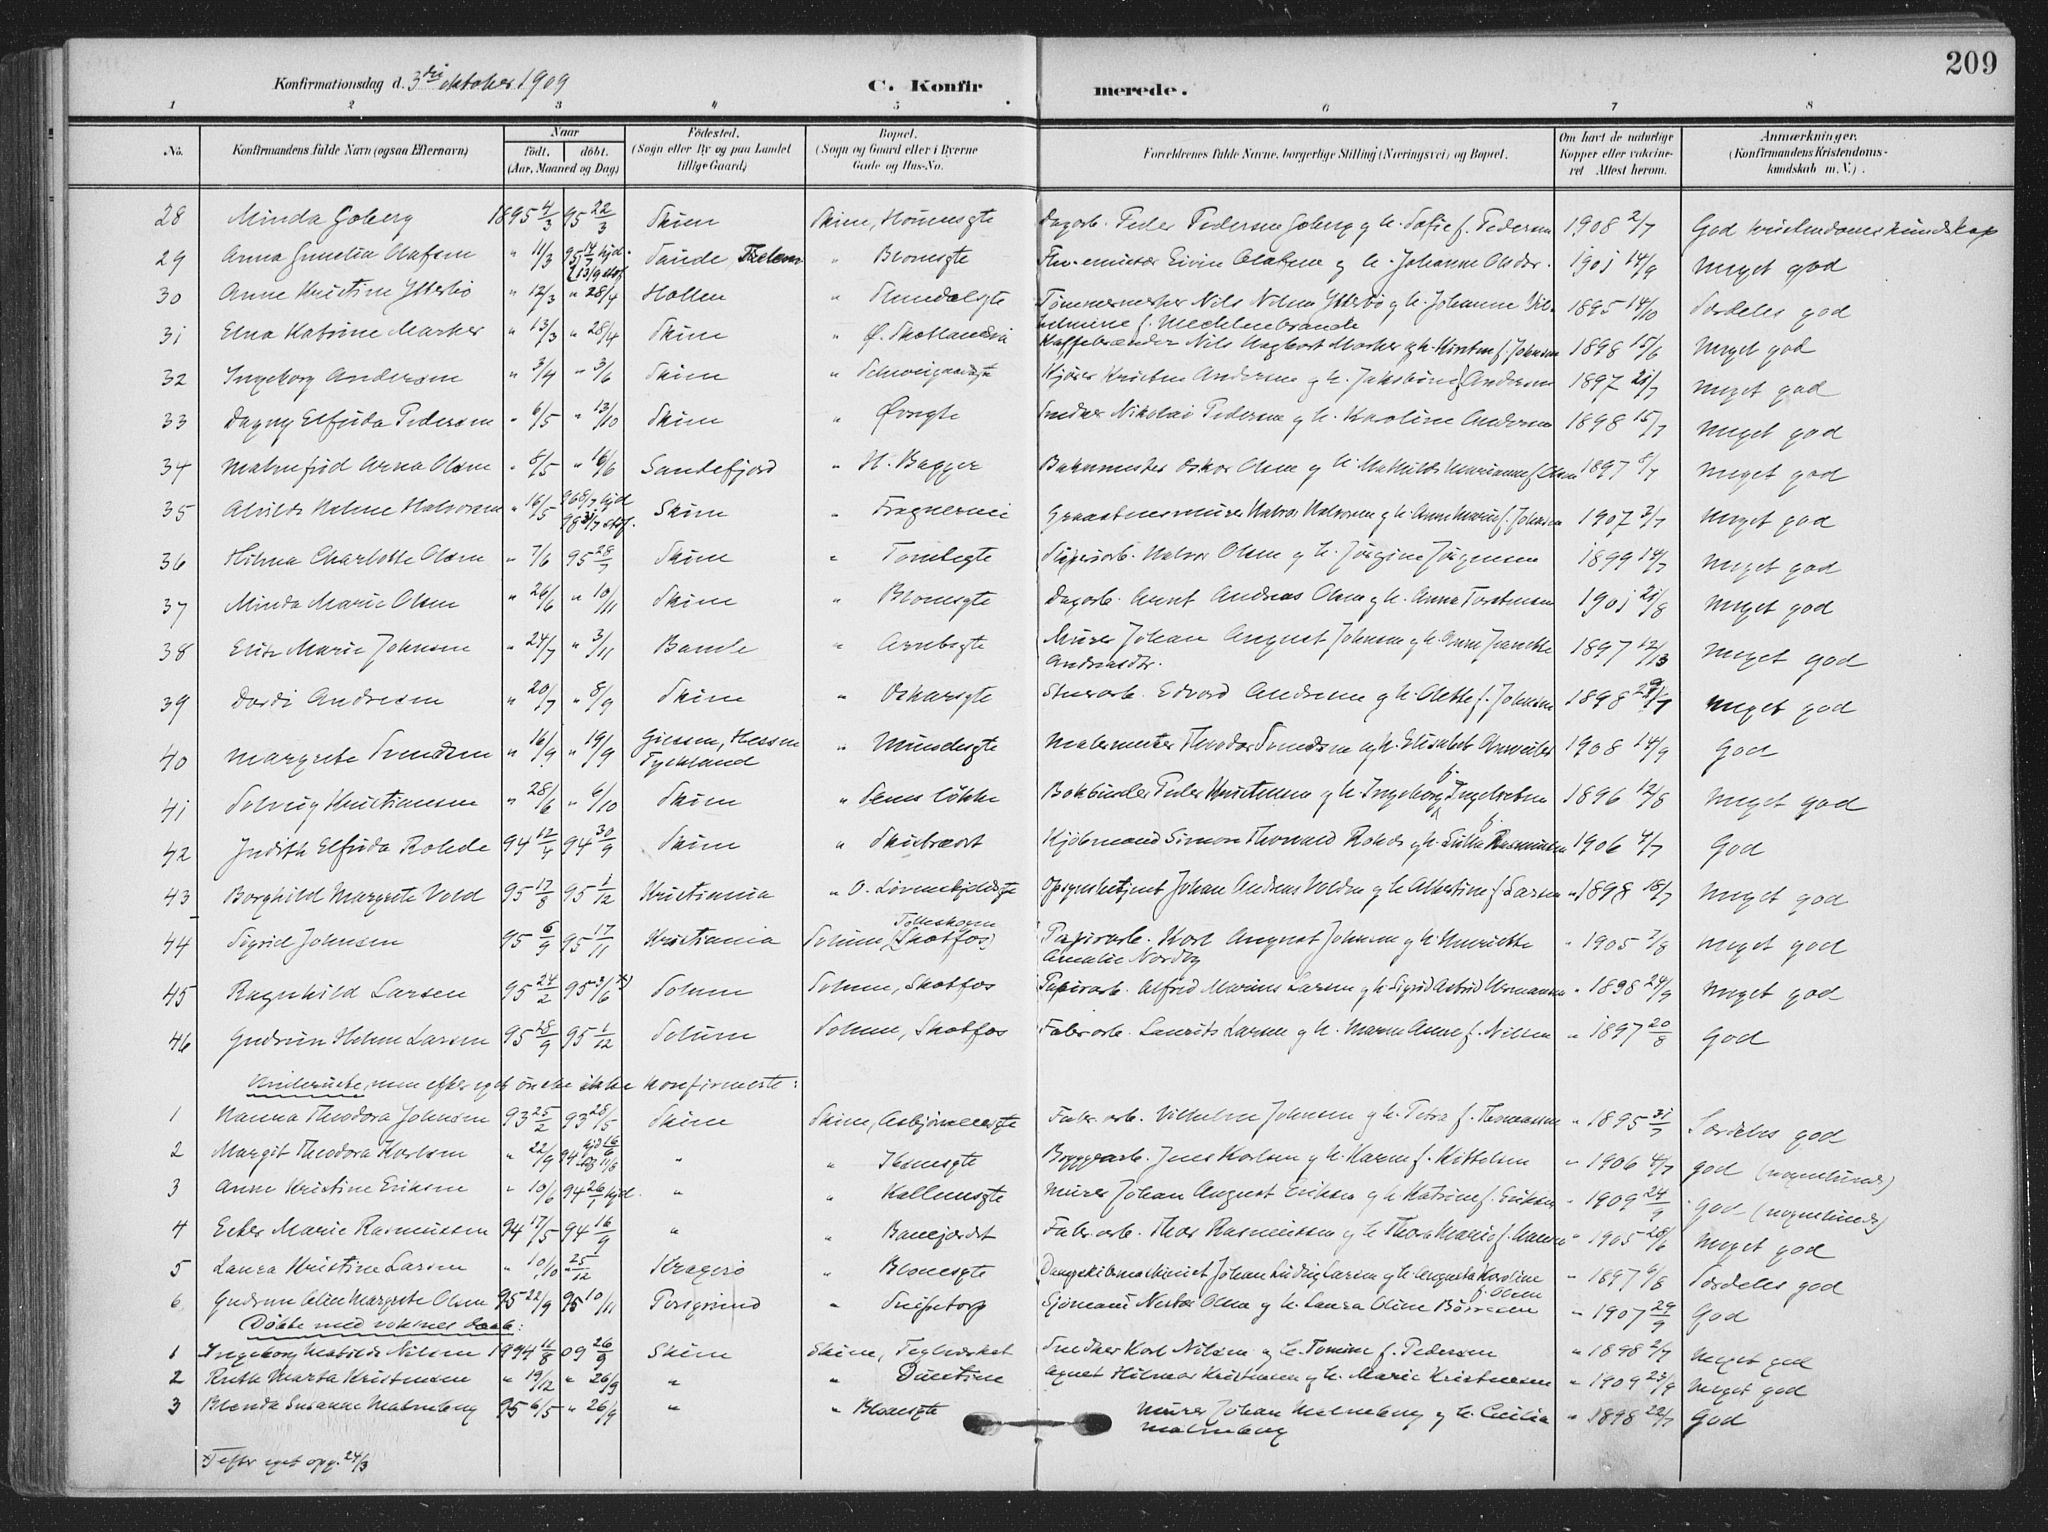 209
Konfirmationsdag d. 3die oktober 1909 C. Konfir merede.
1 2 3 4 5 6 7 8
No. Konfirmandens fulde Navn (ogsaa Efternavn) Naar Fødested. Bopæl. Forældrenes fulde Navne, borgerlige Stilling (Næringsvei) og Bopæl. Om havt de naturlige Anmærkninger.
født. døbt. (Sogn eller By og paa Landet (Sogn og Gaard eller i Byerne Kopper eller vakcine- (Konfirmandens Kristendoms-
(Aar, Maaned og Dag) tillige Gaard) Gade og Hus-No. ret Attest herom. kundskab m. V.).
28 Minda Goberg 1895 4/3 95 22/3 Skien Skien, Dagarb. Peder Pedersen Goberg g h. Sofie f. Pedersen 1908 2/7 God kristendomskundskap
29 Anna Gunelia Olafsen " 11/3 95 14/7 hjd. Sande " Blomsgte Eivin Olafsen g h. Johanne 1901 14/9 Meget god
(13/9 stdf.
30 Anne Kristine Ytterbø " 12/3 " 28/4 Hollen " Tømmermester Nils Nilsen Ytterbø g h. Johanne Vil- 1895 14/10 Særdeles god
helmine f. Mecklenbrande
31 Elna Katrine Marker " 13/3 " 28/4 Skien " Ø. Skotlandsvei Kaffebrænder Nils Hagbart Marker g h. Kirsten f. Johnsen 1898 15/6 Meget god
32 Ingeborg Andersen " 3/4 " 3/6 Skien " Schweigaardsgte Kjører Kristen Andersen g h. Jakobine f. Andersen 1897 21/7 Meget god
33 Dagny Elfrida Pedersen " 6/5 " 13/10 Skien " Øvregte Snedker Nikolai Pedersen g h. Karoline Andersen 1898 15/7 Meget god
34 Malmfrid Arna Olsen " 8/5 " 16/6 Sandefjord " H. Bagger Banemester Oskar Olsen g h. Mathilde Marianne f. Olsen 1897 8/7 Meget god
35 Alvilde Helene Halvorsen " 16/5 96 8/7 hjd Skien " Fragnervei Graastensmurer Halvor Halvorsen g h. Anne Marie f. Johnsen 1907 3/7 Meget god
98 31/7 stdf.
36 Hilma Charlotte Olsen " 7/6 95 28/7 Skien " Tomtegte Sliperiarb. Halvor Olsen g h. Jørgine Jørgensen 1899 14/7 Meget god
37 Minda Marie Olsen " 26/6 " 10/11 Skien " Blomsgte Dagarb. Arnt Andreas Olsen g h. Anna Torstensen 1901 21/8 Meget god
38 Elise Marie Johnsen " 24/7 " 3/11 Bamle " Arnbogte Murer Johan August Johnsen g h. Anne 1897 12/13 Meget god
Andreasdtr.
39 Dordi Andresen " 20/7 " 8/9 Skien " Oskarsgte Stuerarb. Edvard Andresen g h. Olette f. Johnsen 1898 29/7 Meget god
40 Margrete Svendsen " 16/9 " 19/9 Giessen, Hessen " Mundesgte Malermester Theodor Svendsen g h. Elisabet 1908 14/9 God
Tyskland
41 Solveig Kristiansen " 28/6 " 6/10 Skien " Sems løkke Bokbinder Peder Kristiansen g h. Ingeborg f. Ingebretsen 1896 12/8 Meget god
42 Judith Elfrida Rohde 94 12/4 94 30/9 Skien " Skistrædet Kjøbmand Simon Thorvald Rohde g h. Lilla f. Rasmussen 1906 4/7 God
43 Borghild Margrete Vold 95 17/8 95 1/12 Kristiania " O. Løvenskjoldsgte Opsynsbetjent Johan Andreas Volden g h. Albertine f. Larsen " 1898 18/7 Meget god
44 Sigrid Johnsen 95 6/9 95 17/11 Kristiania Solum, (Skotfos) Papirarb. Karl August Johnsen g h. Henriette " 1905 2/8 Meget god
Amalie Nordby
45 Ragnhild Larsen 95 24/2 95 3/6 x) Solum Solum, Skotfos Papirarb. Alfred Marius Larsen g h. Sigrid Astrid Hermansen " 1898 24/9 Meget god
46 Gudrun Helene Larsen 95 28/9 95 1/12 Solum Solum, Skotfos Fabr. arb. Laurits Larsen g h. Maren Anne f. Nilsen " 1897 20/8 God
Underviste, men efter eget ønske ikke konfirmerte:
1 Nanna Theodora Johnsen 93 25/2 93 28/5 Skien Skien, Asbjørnsensgte Fabr. arb. Vilhelm Johnsen g h. Petra f. Thomassen " 1895 31/7 Særdeles god
2 Margit Theodora Karlsen " 22/9 94 hjd 16/6 " " Ibsensgte Byggearb. Jens Karlsen g h. Karen f. Kittelsen " 1906 4/7 god (nogenlunde)
3 Anne Kristine Eriksen " 10/6 94 26/1 hjd. " " Kallumsgte Murer Johan August Eriksen g h. Katrine f. Eriksen " 1909 24/9 God (nogenlunde)
4 Ester Marie Rasmussen 94 17/5 94 16/9 " " Banejordet Fabr. arb. Thor Rasmussen g h. Thora Marie f. Hansen " 1905 28/6 Meget god
5 Laura Kristine Larsen " 10/10 " 25/12 Kragerø " Blomsgte Dampskibsmaskinist Johan Ludvig Larsen g h. Augusta Karoline " 1897 6/8 Særdeles god
f. Olsen
6 Gudrun Aline Margrete Olsen 95 22/9 95 10/11 Porsgrund " Snipetorp Sjømand Nestor Olsen g h. Laura Oline Børresen " 1907 29/9 God
Døbte med voksnes daab:
1 Ingeborg Matilde Nilsen 1894 16/8 09 26/9 Skien Skien, Teglverket Snedker Karl Nilsen g h. Tomine f. Pedersen " 1898 2/7 Meget god
2 Ruth Marta Kristensen " 19/12 " 26/9 " " Duestien Agent Hilmar Kristensen g h. Marie Kristensen " 1909 23/9 Meget god
3 Blenda Susanne Malmberg 95 6/5 " 26/9 " " Blomsgte Murer Johan Malmberg g h. Cecilia " 1898 22/7 God
Malmberg
x) efter eget opg. 24/3